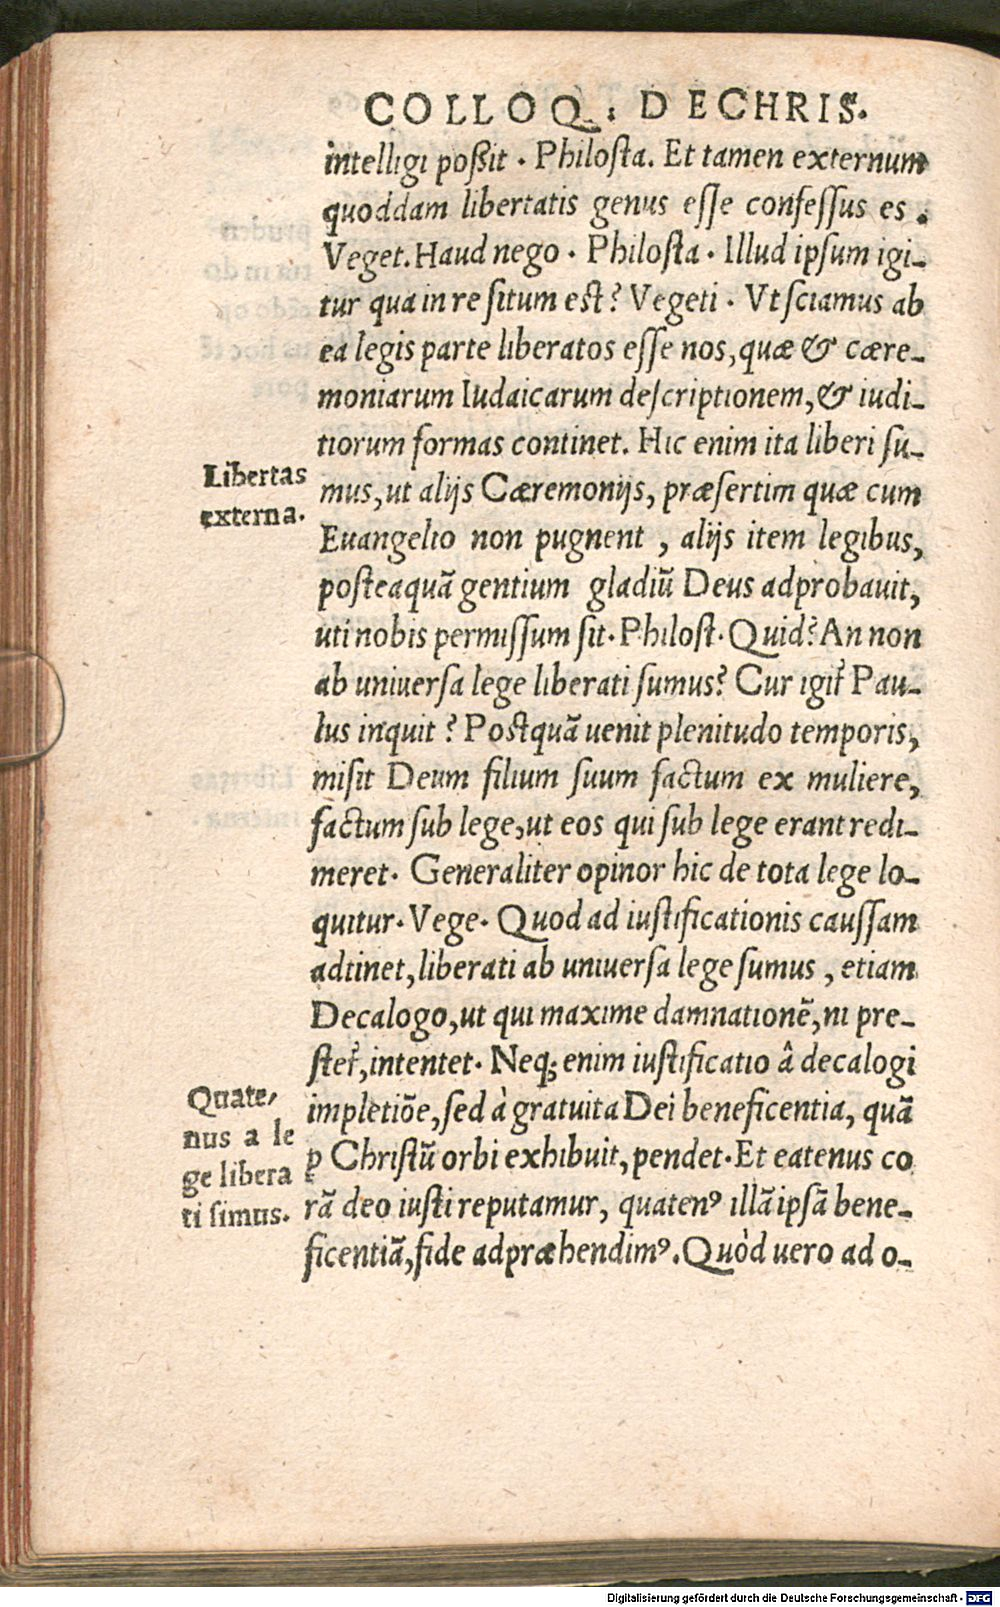 COLLOQ: DECHRIS.
intelligi poßit. Philosta. Et tamen externum
quoddam libertatis genus esse confessus es.
Veget. Haud nego. Philosta. Illud ipsum igi-
tur qua in re situm est? Vegeti. Vt sciamus ab
ea legis parte liberatos esse nos, quæ & cære-
moniarum Iudaicarum descriptionem, & iudi-
tiorum formas continet. Hic enim ita liberi su-
Libertas
externa.
mus, ut alijs Cæremonijs, præsertim quæ cum
Euangelio non pugnent, alijs item legibus,
posteaquã gentium gladiũ Deus adprobauit,
uti nobis permissum sit. Philost. Quid? An non
ab uniuersa lege liberati sumus? Cur igit̃ Pau-
lus inquit? Postquã uenit plenitudo temporis,
misit Deum filium suum factum ex muliere,
factum sub lege, ut eos qui sub lege erant redi-
meret. Generaliter opinor hic de tota lege lo-
quitur. Vege. Quod ad iustificationis caussam
adtinet, liberati ab uniuersa lege sumus, etiam
Decalogo, ut qui maxime damnationẽ, ni pre-
stet̃, intentet. Neq; enim iustificatio â decalogi
Quate,
nus a le
ge libera
ti simus.
impletiõe, sed à gratuita Dei beneficentia, quã
ꝑ Christũ orbi exhibuit, pendet. Et eatenus co
rã deo iusti reputamur, quatenꝰ illã ipsã bene-
ficentiã, fide adpræhendimꝰ. Quòd uero ad o-
Digitalisierung gefördert durch die Deutsche Forschungsgemeinschaft - DFG